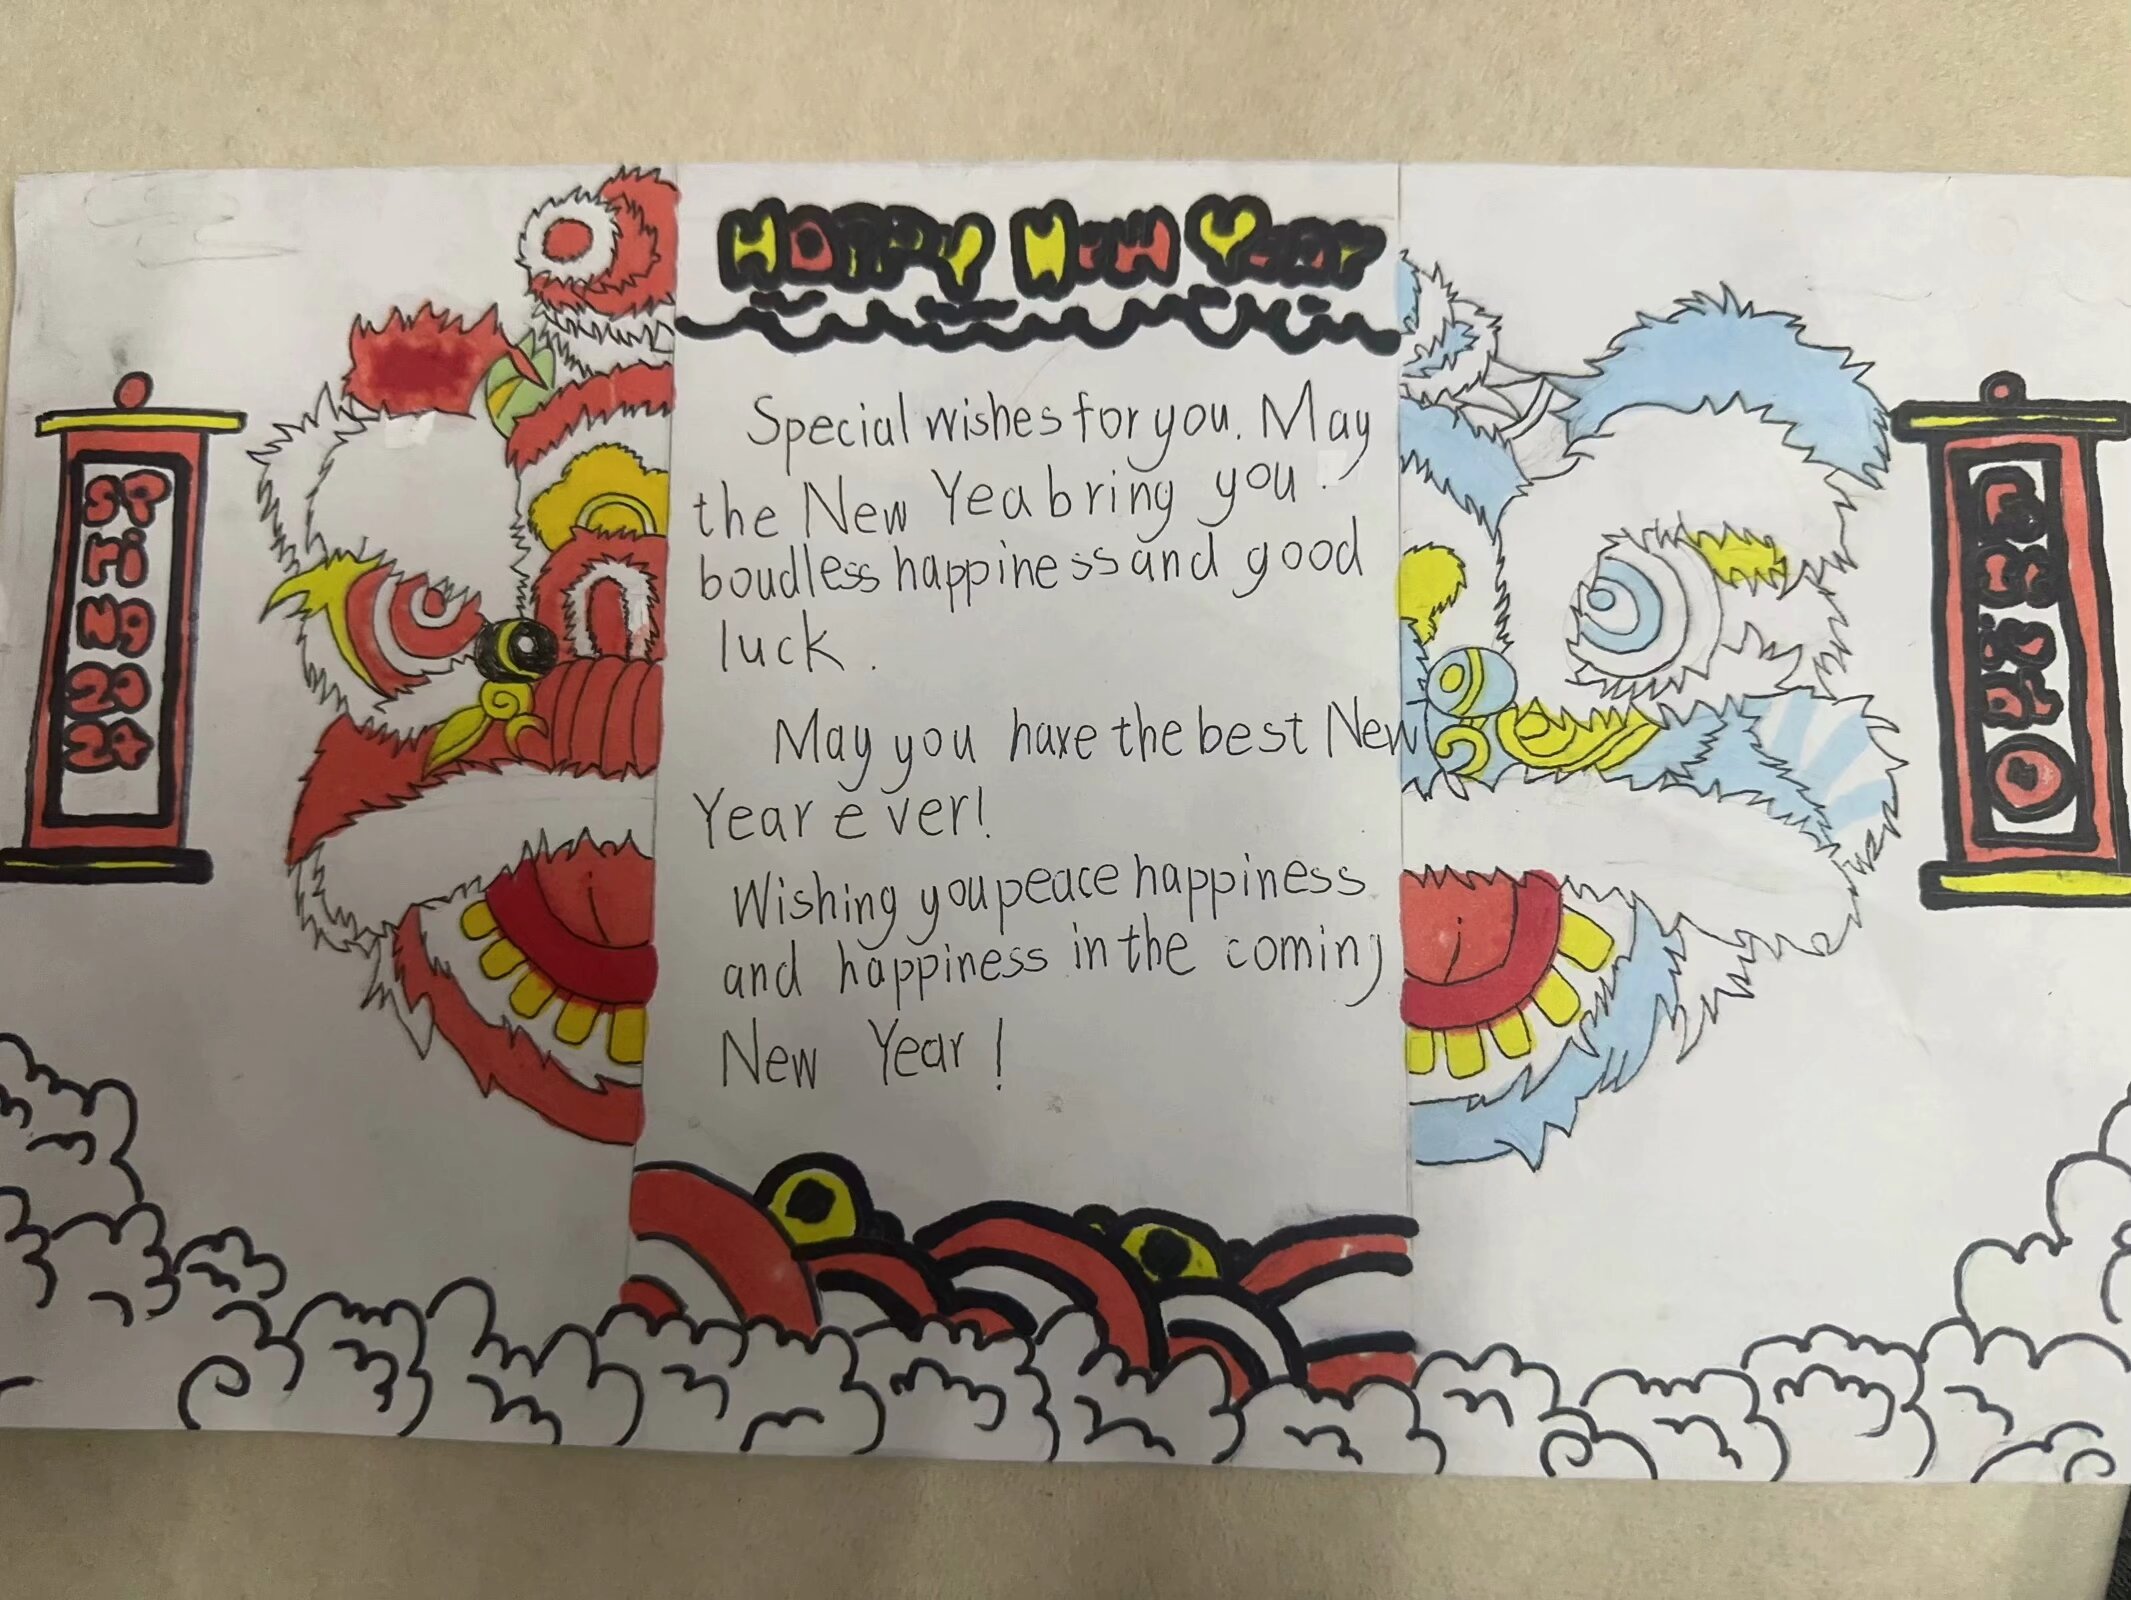 Happy New Year
SP
ri
ng
20
24
Special wishes for you. May
the New Yea bring you
boudless happiness and good
luck.
May you have the best New
Year ever!
Wishing you peace happiness
and happiness in the coming
New Year!